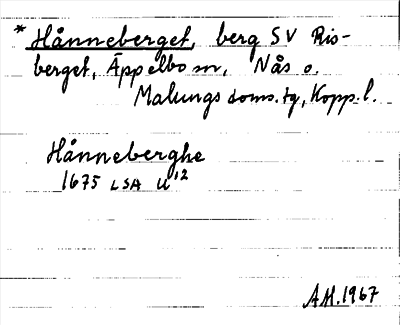 * Hånneberget, berg SV Ris-
berget, Äppelbo sn, Nås o.
Malungs doms. tg, Kopp. l.
Hånneberghe
1675 LSA U 12
A.H. 1967